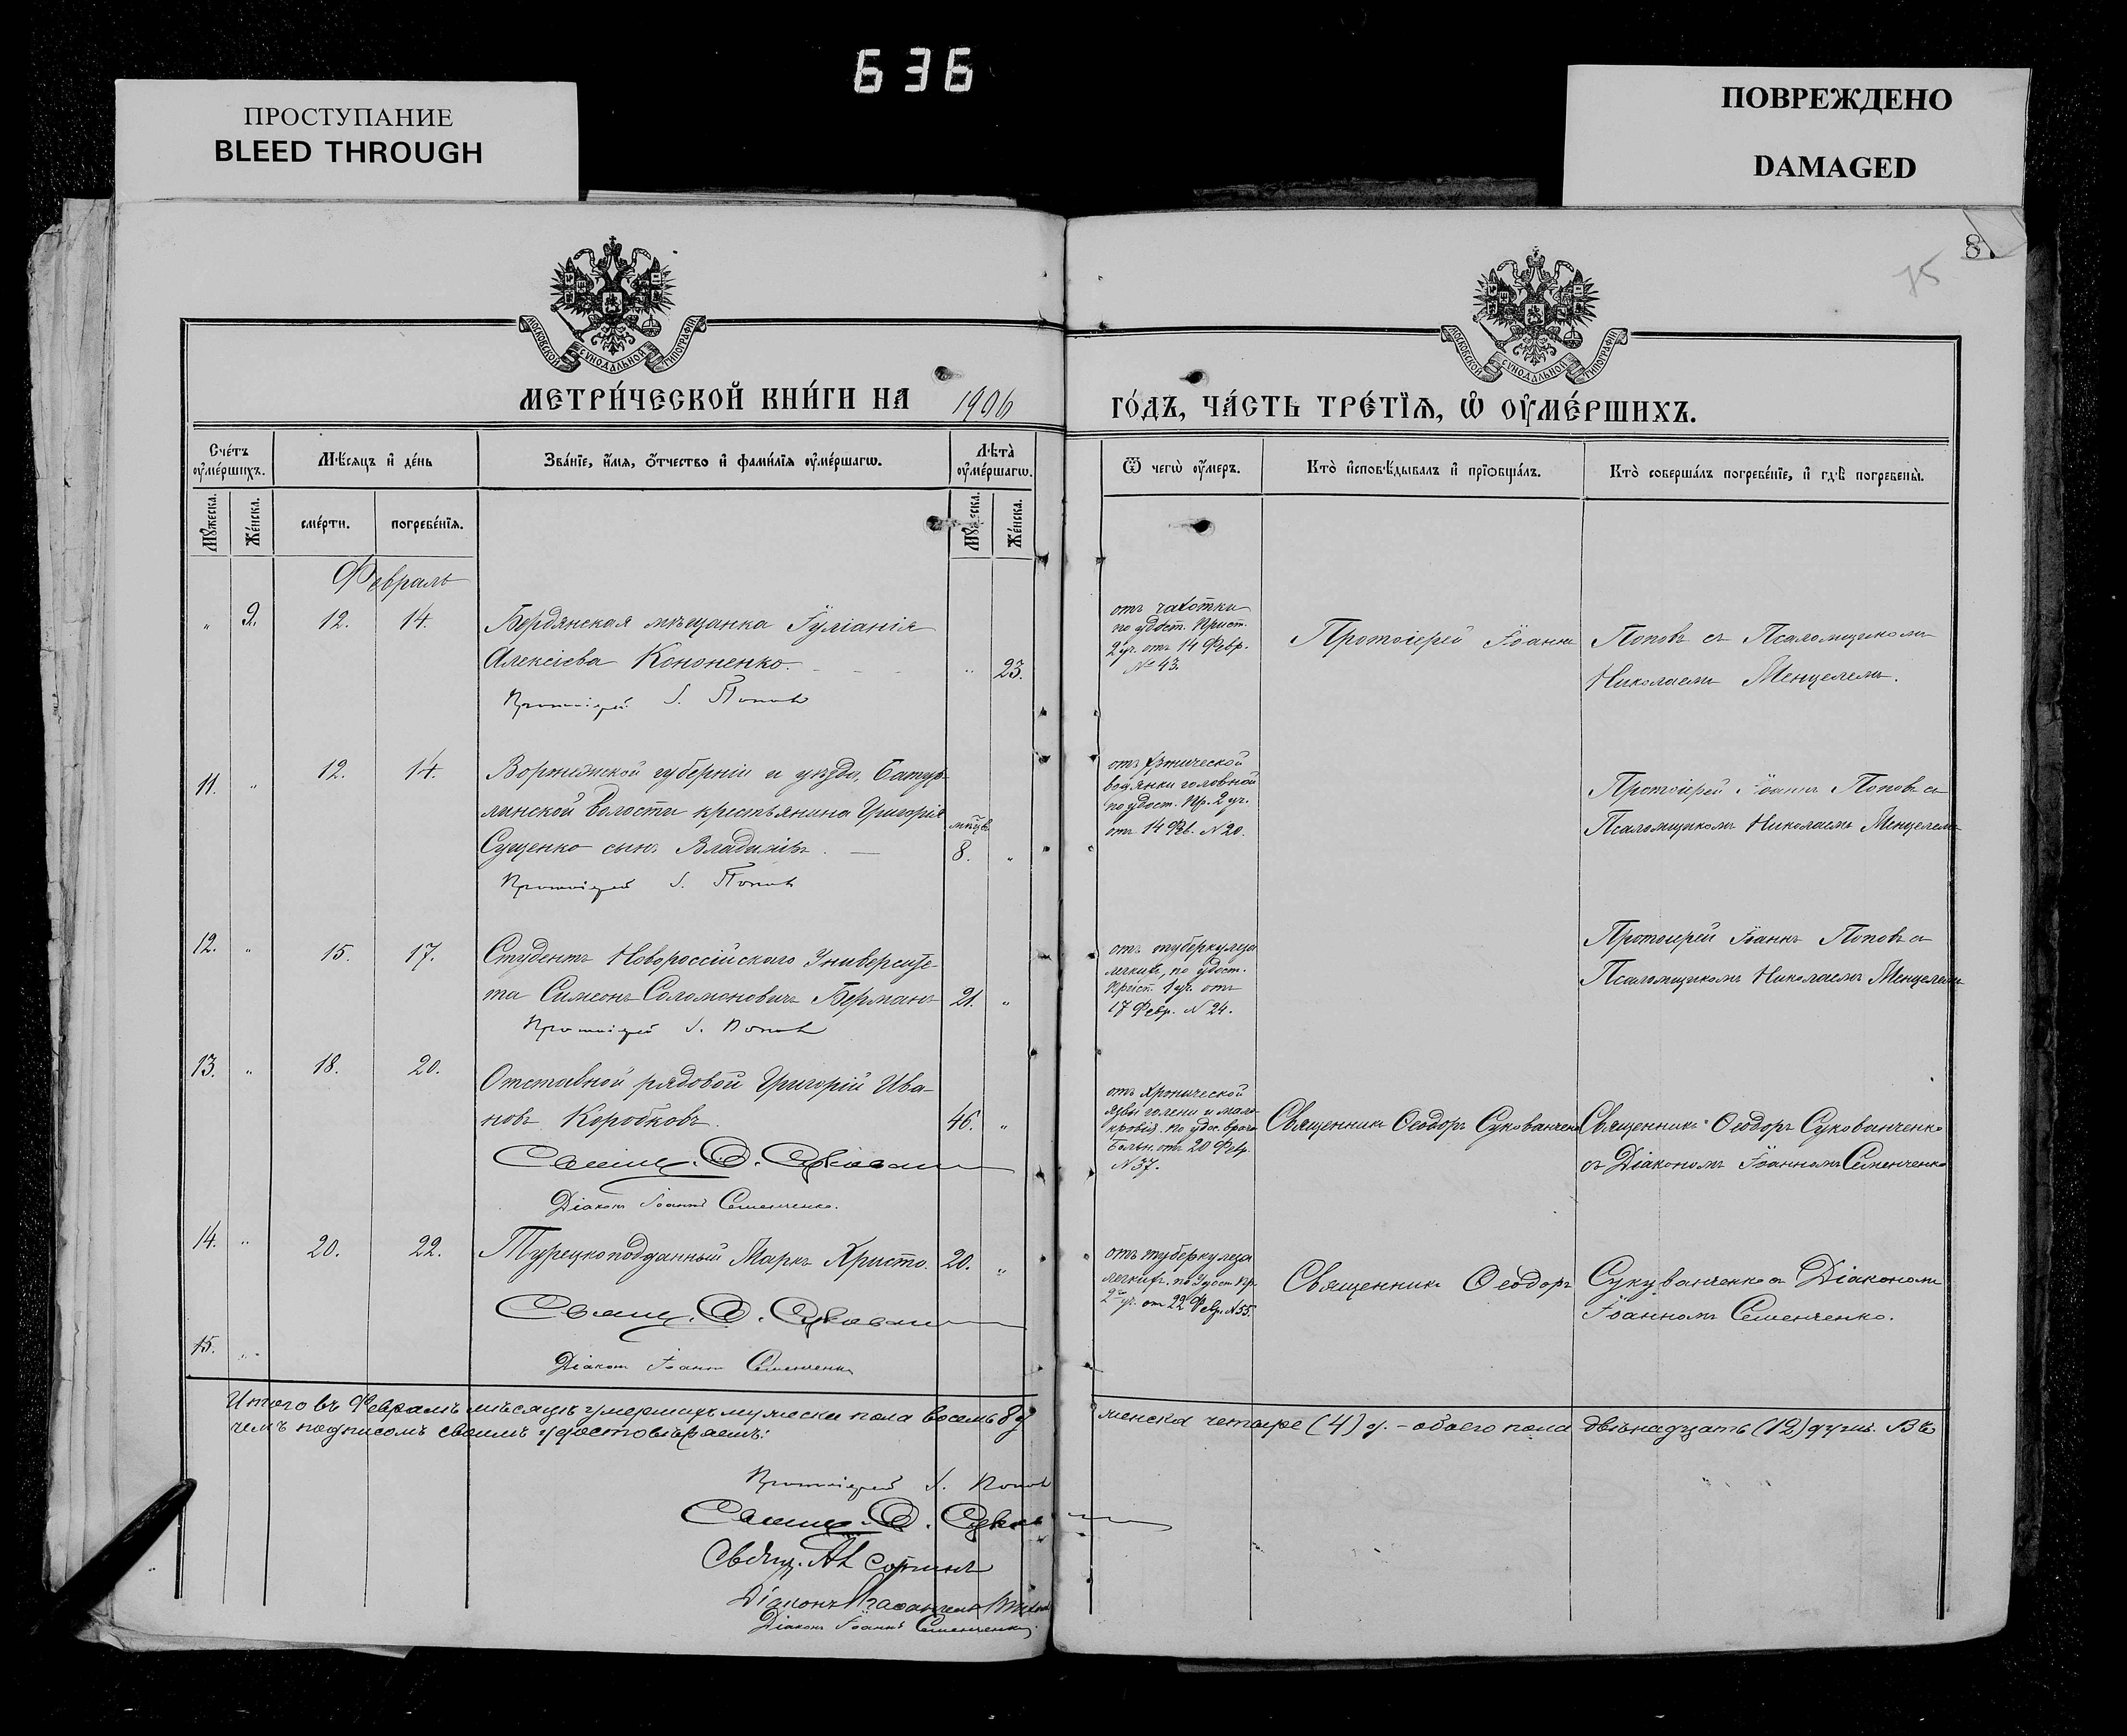 636
ПРОСТУПАНИЕ
BLEED THROUGH
ПОВРЕЖДЕНО
DAMAGED
8
75
МОСКОВСКОЙ СѴНОДАЛЬНОЙ ТИПОГРАФІИ
МОСКОВСКОЙ СѴНОДАЛЬНОЙ ТИПОГРАФІИ
МЕТРИ́ЧЕСКОЙ КНИ́ГИ НА 1906
ГО́ДЪ, ЧА́СТЬ ТРЕ́ТЇѦ, Ѡ҆ ОУ҆МЕ́РШИХЪ.
Сче́тъ оу҆ме́ршихъ.
Мѣ́сяцъ и҆ де́нь
Зва́нїе, и҆́мѧ, о҆́тчество и҆ фами́лїѧ оу҆ме́ршагѡ.
Лѣта̀ оу҆ме́ршагѡ.
Ѿ чегѡ̀ оу҆́меръ.
Кто̀ и҆сповѣ́дывалъ и҆ прїѡбща́лъ.
Кто̀ соверша́лъ погребе́нїе, и҆ гдѣ̀ погребены̀.
Мꙋ́жеска.
Же́нска.
сме́рти.
погребе́нїѧ.
Мꙋ́жеска.
Же́нска.
Февраль
" 2. 12. 14. Бердянская мѣщанка Іуліанія
Алексіева Кононенко. " 23.
Протоіерей І. Поповъ
отъ чахотки
по удост. Прист.
2 уч. отъ 14 Февр.
№ 43.
Протоіерей Іоаннъ
Поповъ съ Псаломщикомъ
Николаемъ Менцелемъ.
11. " 12. 14. Воронежской губерніи и уѣзда,
линской волости крестьянина Григорія
Сущенко сынъ Владиміръ. 8. "
Протоіерей І. Поповъ
отъ хронической
водянки головной
по удост. Пр. 2 уч.
отъ 14 Фев. N 20.
Протоіерей Іоаннъ Поповъ съ
Псаломщикомъ Николаемъ Менцелемъ
12. " 15. 17. Студентъ Новороссійскаго Университе-
та Симеонъ Соломоновичъ Берманъ 21. "
Протоіерей І. Поповъ
отъ туберкулеза
легкихъ, по удост.
Прист. 1 уч. отъ
17 Февр. N 24.
Протоіерей Іоаннъ Поповъ съ
Псаломщикомъ Николаемъ Менцелемъ
13. " 18. 20. Отставной рядовой Григорій Ива-
новъ Коробковъ. 46. "
Свящ. Ѳ.
Діаконъ Іоаннъ Семенченко.
отъ хронической
язвы голени и мало-
кровія. по удос. врача
Больн. отъ 20 Февр.
N 37.
Священникъ Ѳеодоръ Сукованченко
Священникъ Ѳеодоръ Сукованченко
съ Діакономъ Іоанномъ Семенченко
14. " 20. 22. Турецкоподданный Маркъ Христо. 20. "
Свящ. Ѳ.
Діаконъ Іоаннъ Семенченко
отъ туберкулеза
легкихъ. по Удост. Пр.
2го уч. отъ 22 Февр. N 55.
Священникъ Ѳеодоръ
Сукуванченко съ Діакономъ
Іоанномъ Семенченко.
15. "
Итого въ Февралѣ мѣсяцѣ умершихъ мужеска пола восемь 8 д
женска четыре (4) д. – обоего пола двѣнадцать (12) душъ. Въ
чемъ подписомъ своимъ удостовѣряемъ:
Протоіерей І. Поповъ
Свящ. Ѳ.
Свящ.
Діаконъ
Діаконъ Іоаннъ Семенченко.